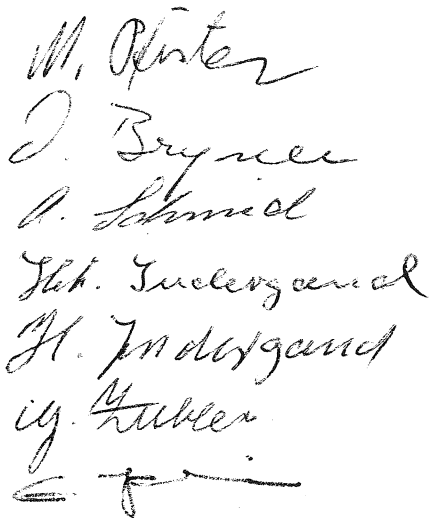 M. Pfister
J. Bryner
A. Schmid
Hch. Indergand
H. Indergand
Zubler